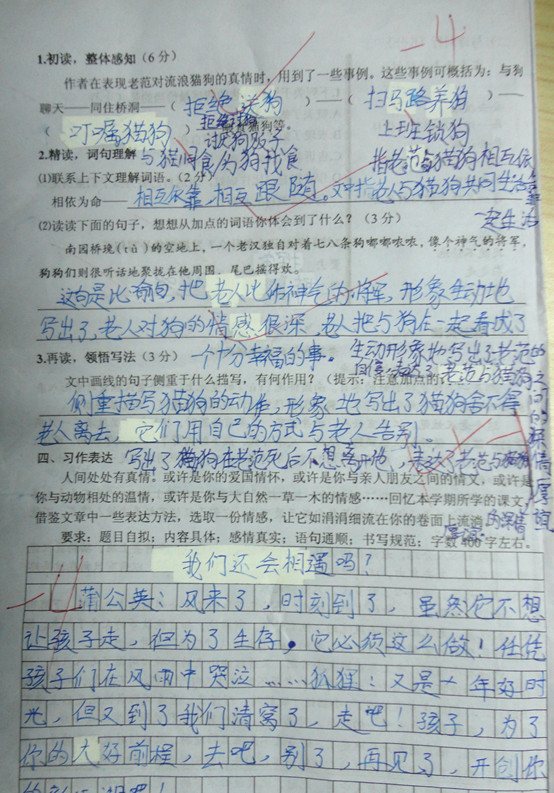 -4
1.初读，整体感知（6分）
作者在表现老范对流浪猫狗的真情时，用到了一些事例。这些事例可概括为：与狗
聊天——同住桥洞——（ 拒绝送狗 ）——（ 扫马路养狗 ）——
（ 叮嘱猫狗 猫狗等。
讨饭
上班锁狗
2.精读，词句理解 与猫同食 为狗找食
指老范与猫狗相互依
⑴联系上下文理解词语。（2分）
相依为命—— 相互依靠，相互跟随。文中指老人与猫狗共同生活
靠
一起生活
⑵读读下面的句子，想想从加点的词语你体会到了什么？（3分）
南园桥境(rǔ)的空地上，一个老汉独自对着七八条狗嘟嘟哝哝，像个神气的将军，
狗狗们则很听话地聚拢在他周围，尾巴摇得欢。
这句是比喻句，把老人比作神气的将军，形象生动地
写出了老人对狗的情感很深，老人把与狗在一起看成了
3.再读，领悟写法（3分） 一个十分幸福的事。
生动形象地写出了老范的
自信，表达了老范与猫狗之间的
深情厚谊
文中画线的句子侧重于什么描写，有何作用？（提示：注意加点的
侧重描写猫狗的动作，形象地写出了猫狗舍不得
老人离去，它们用自己的方式与老人告别。
写出了猫狗在老范死后不想离开他，表达了老范与猫狗
的深情
厚谊。
四、习作表达
人间处处有真情，或许是你的爱国情怀，或许是你与亲人朋友之间的情义，或许是
你与动物相处的温情，或许是你与大自然一草一木的情感……回忆本学期所学的课文，
借鉴文章中一些表达方法，选取一份情感，让它如涓涓细流在你的卷面上流淌
要求：题目自拟；内容具体；感情真实；语句通顺；书写规范；字数400字左右。
我们还会相遇吗？
-4
蒲公英：风来了，时刻到了，虽然它不想
让孩子走，但为了生存，它必须这么做！任凭
孩子们在风雨中哭泣……狐狸：又是一年好时
光，但又到了我们清窝了，走吧！孩子，为了
你的大好前程，去吧，别了，再见了，开创你